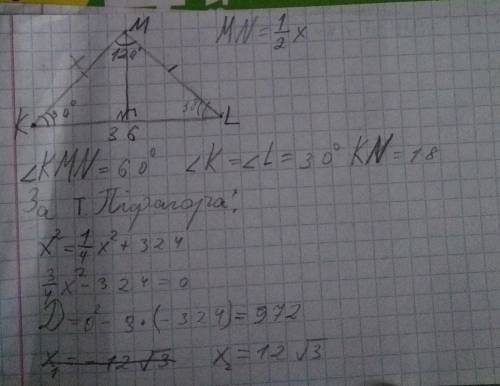 M
MN=½x
x
120°
K 30° 30° L
N
36
∠KMN=60° ∠K=∠L=30° KN=18
За т. Піфагора:
x²=¼x²+324
¾x²-324=0
D=0²-3·(-324)=972
x₁=-12√3 x₂=12√3